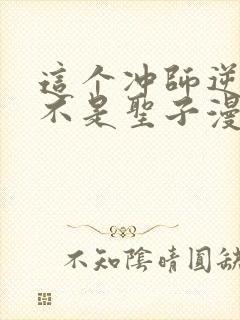 這个冲師逆
不是聖子漫
不知陰晴圓缺